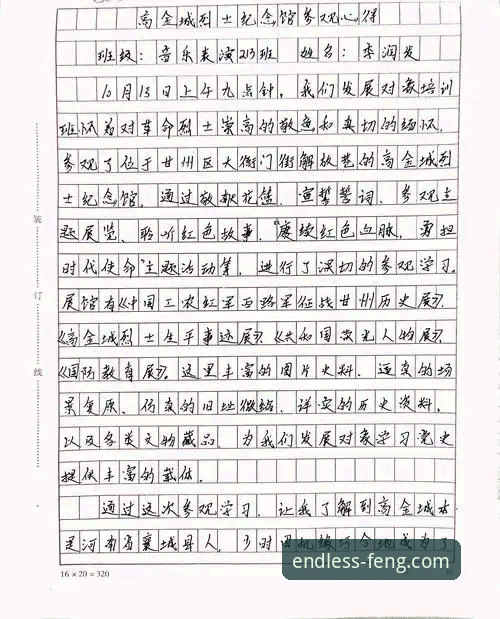 高金城烈士纪念馆参观心得
班级：音乐表演213班 姓名：李润发
10月13日上午九点钟，我们发展对象培训
班怀着对革命烈士崇高的敬意和真切的缅怀，
参观了位于甘州区大衙门街解放巷的高金城烈
士纪念馆。通过敬献花篮、宣誓誓词、参观主
题展览、聆听红色故事、“赓续红色血脉，勇担
时代使命”主题活动等，进行了深切的参观学习。
展馆有《中国工农红军西路军征战甘州历史展》、
《高金城烈士生平事迹展》、《共和国发光人物展》、
《国防教育展》。这里丰富的图片史料、逼真的场
景复原、仿真的旧址微缩、详实的历史资料，
以及各类文物藏品，为我们发展对象学习党史
提供丰富的载体。
通过这次参观学习，让我了解到高金城
是河南省襄城县人，少时因机缘巧合地成为了
装
订
线
16×20=320
endless-feng.com